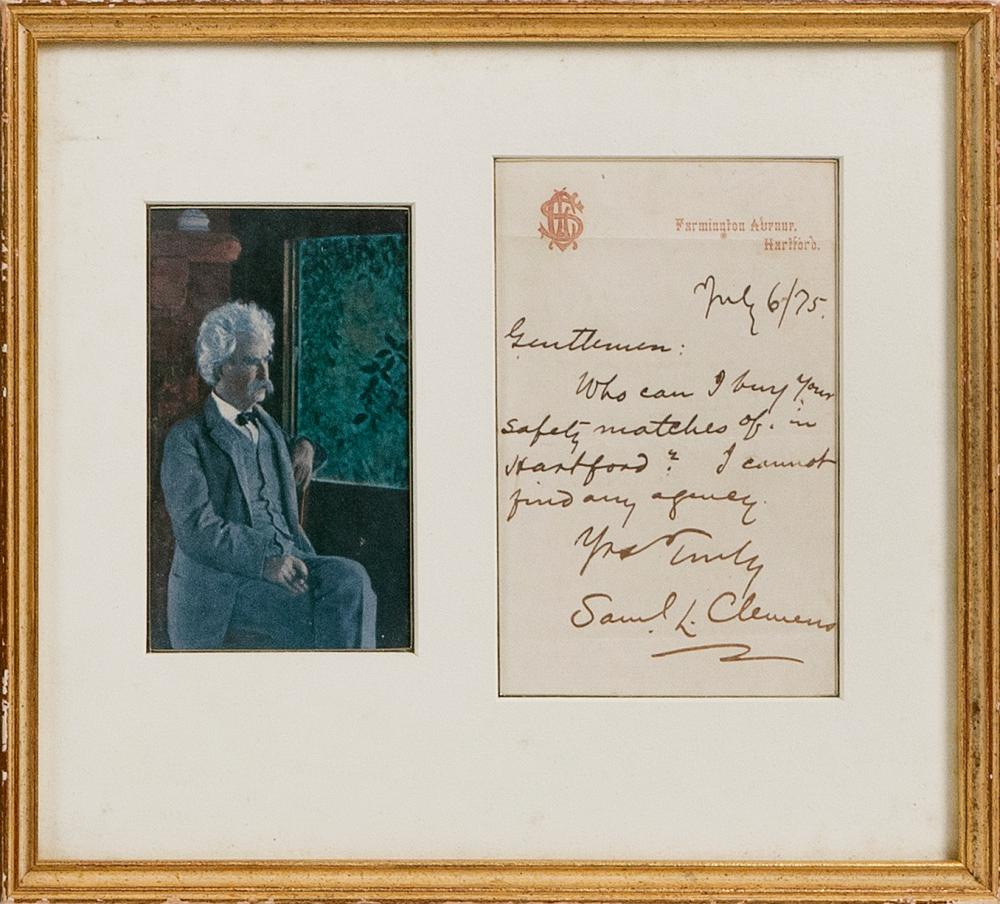 Farmington Avenue,
Hartford.
July 6/75.
Gentlemen:
Who can I buy your
safety matches of, in
Hartford? I cannot
find any agency.
Yrs Truly
Saml. L. Clemens